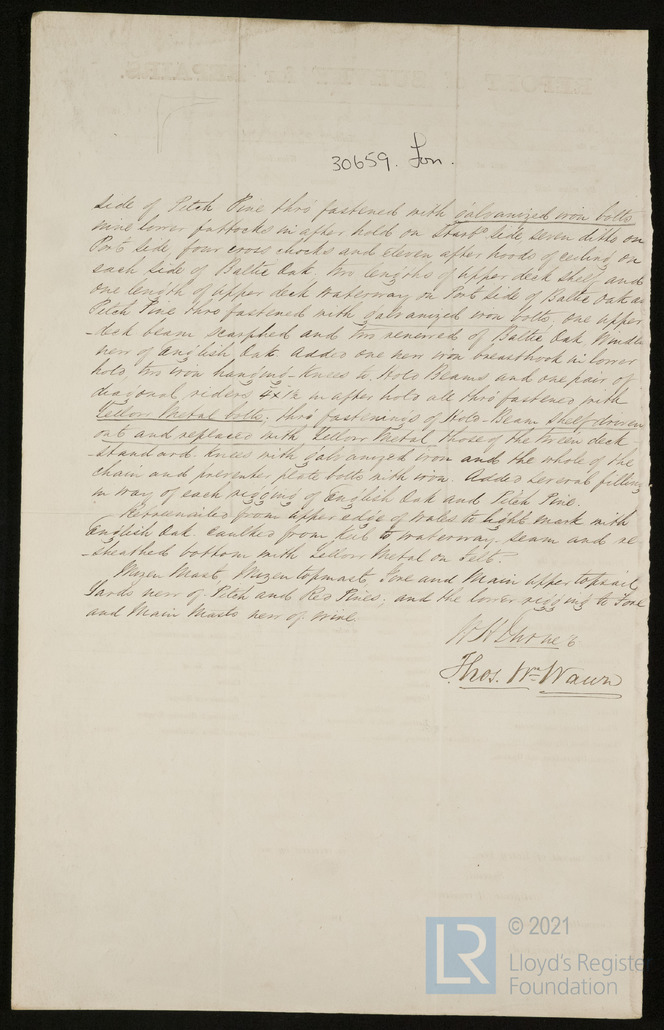 REPORT of SURVEY for REPAIRS.
30659. Lon.
side of Pitch Pine thro' fastened with galvanized iron bolts
nine lower futtocks in after hold on Starbd side seven ditto on
Port side four cross chocks and eleven after hoods of ceiling on
each side of Baltic Oak, two lengths of upper deck shelf and
one length of upper deck waterway on Port side of Baltic Oak and
Pitch Pine thro' fastened with galvanized iron bolts, one upper
-deck beam scarphed and two renewed of Baltic Oak Windlass
new of English Oak. Added one new iron breasthook in lower
hold, two iron hanging-knees to Hold Beams and one pair of
diagonal riders 4 x 1½ in after hold all thro' fastened with
Yellow Metal bolts; thro' fastenings of Hold-Beam shelf driven
out and replaced with Yellow Metal those of the tween deck
-standard knees with galvanized iron and the whole of the
chain and preventer plate bolts with iron. Added several fillings
in way of each rigging of English Oak and Pitch Pine.
Retreenailed from upper edge of wales to light mark with
English Oak. Caulked from keel to waterway-seam and re
-sheathed bottom with Yellow Metal on Felt.
Mizen Mast, Mizen topmast, Fore and Main upper topsail
Yards new of Pitch and Red Pines; and the lower rigging to Fore
and Main Masts new of wire.
Thos. Wm Wawn
LR
© 2021
Lloyd's Register
Foundation